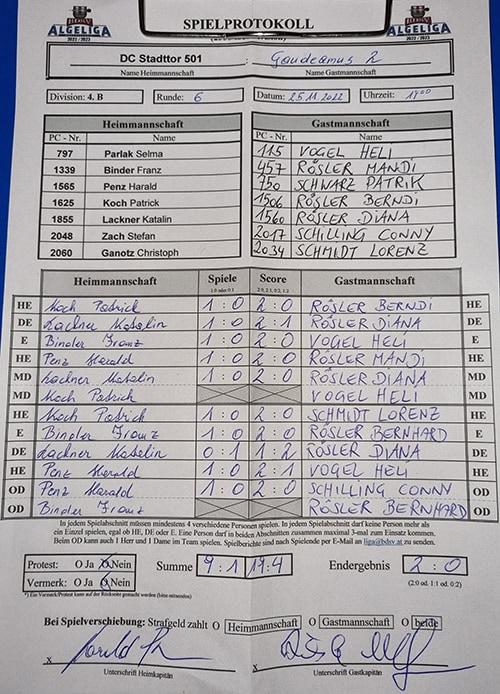 BDSV ALGELIGA 2022 / 2023
SPIELPROTOKOLL
BDSV ALGELIGA 2022 / 2023
DC Stadttor 501 : Gaudeamus 2
Name Heimmannschaft Name Gastmannschaft
Division: 4. B Runde: 6 Datum: 25.11.2022 Uhrzeit: 1900
Heimmannschaft Gastmannschaft
PC - Nr. Name PC - Nr. Name
797 Parlak Selma 115 VOGEL HELI
1339 Binder Franz 457 RÖSLER MANDI
1565 Penz Harald 750 SCHWARZ PATRIK
1625 Koch Patrick 1506 RÖSLER BERNDI
1855 Lackner Katalin 1560 RÖSLER DIANA
2048 Zach Stefan 2017 SCHILLING CONNY
2060 Ganotz Christoph 2034 SCHMIDT LORENZ
Heimmannschaft Spiele Score Gastmannschaft
1:0 oder 0:1 2:0, 2:1, 0:2, 1:2
HE Koch Patrick 1 : 0 2 : 0 RÖSLER BERNDI HE
DE Lackner Katalin 1 : 0 2 : 1 RÖSLER DIANA DE
E Binder Franz 1 : 0 2 : 0 VOGEL HELI E
HE Penz Harald 1 : 0 2 : 0 RÖSLER MANDI HE
MD Lackner Katalin 1 : 0 2 : 0 RÖSLER DIANA MD
MD Koch Patrick VOGEL HELI MD
HE Koch Patrick 1 : 0 2 : 0 SCHMIDT LORENZ HE
E Binder Franz 1 : 0 2 : 0 RÖSLER BERNHARD E
DE Lackner Katalin 0 : 1 1 : 2 RÖSLER DIANA DE
HE Penz Harald 1 : 0 2 : 1 VOGEL HELI HE
OD Penz Harald 1 : 0 2 : 0 SCHILLING CONNY OD
OD Binder Franz RÖSLER BERNHARD OD
In jedem Spielabschnitt müssen mindestens 4 verschiedene Personen spielen. In jedem Spielabschnitt darf keine Person mehr als
ein Einzel spielen, egal ob HE, DE oder E. Eine Person darf in beiden Abschnitten zusammen maximal 3-mal zum Einsatz kommen.
Beim OD kann auch 1 Herr und 1 Dame im Team spielen. Spielberichte sind nach Spielende per E-Mail an liga@bdsv.at zu senden.
Protest: O Ja O Nein Summe 9 : 1 19:4 Endergebnis 2 : 0
Vermerk: O Ja O Nein (2:0 od. 1:1 od. 0:2)
*) Ein Vermerk/Protest kann auf der Rückseite gemacht werden (bitte ankreuzen)
Bei Spielverschiebung: Strafgeld zahlt O Heimmannschaft O Gastmannschaft O beide
x x
Unterschrift Heimkapitän Unterschrift Gastkapitän